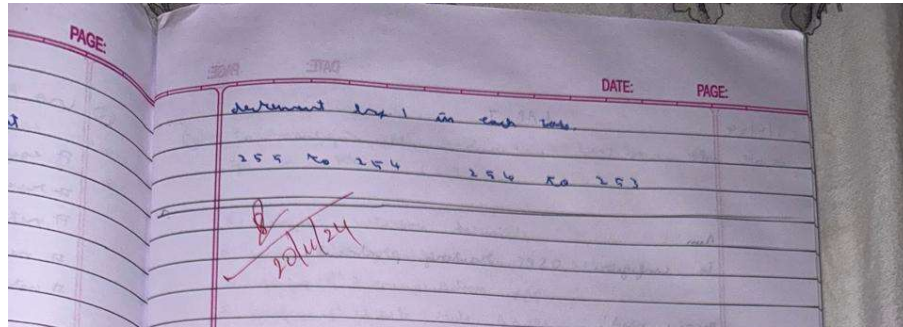 PAGE:
DATE: PAGE:
decrement by 1 in each
255 to 254 254 to 253
20/11/24